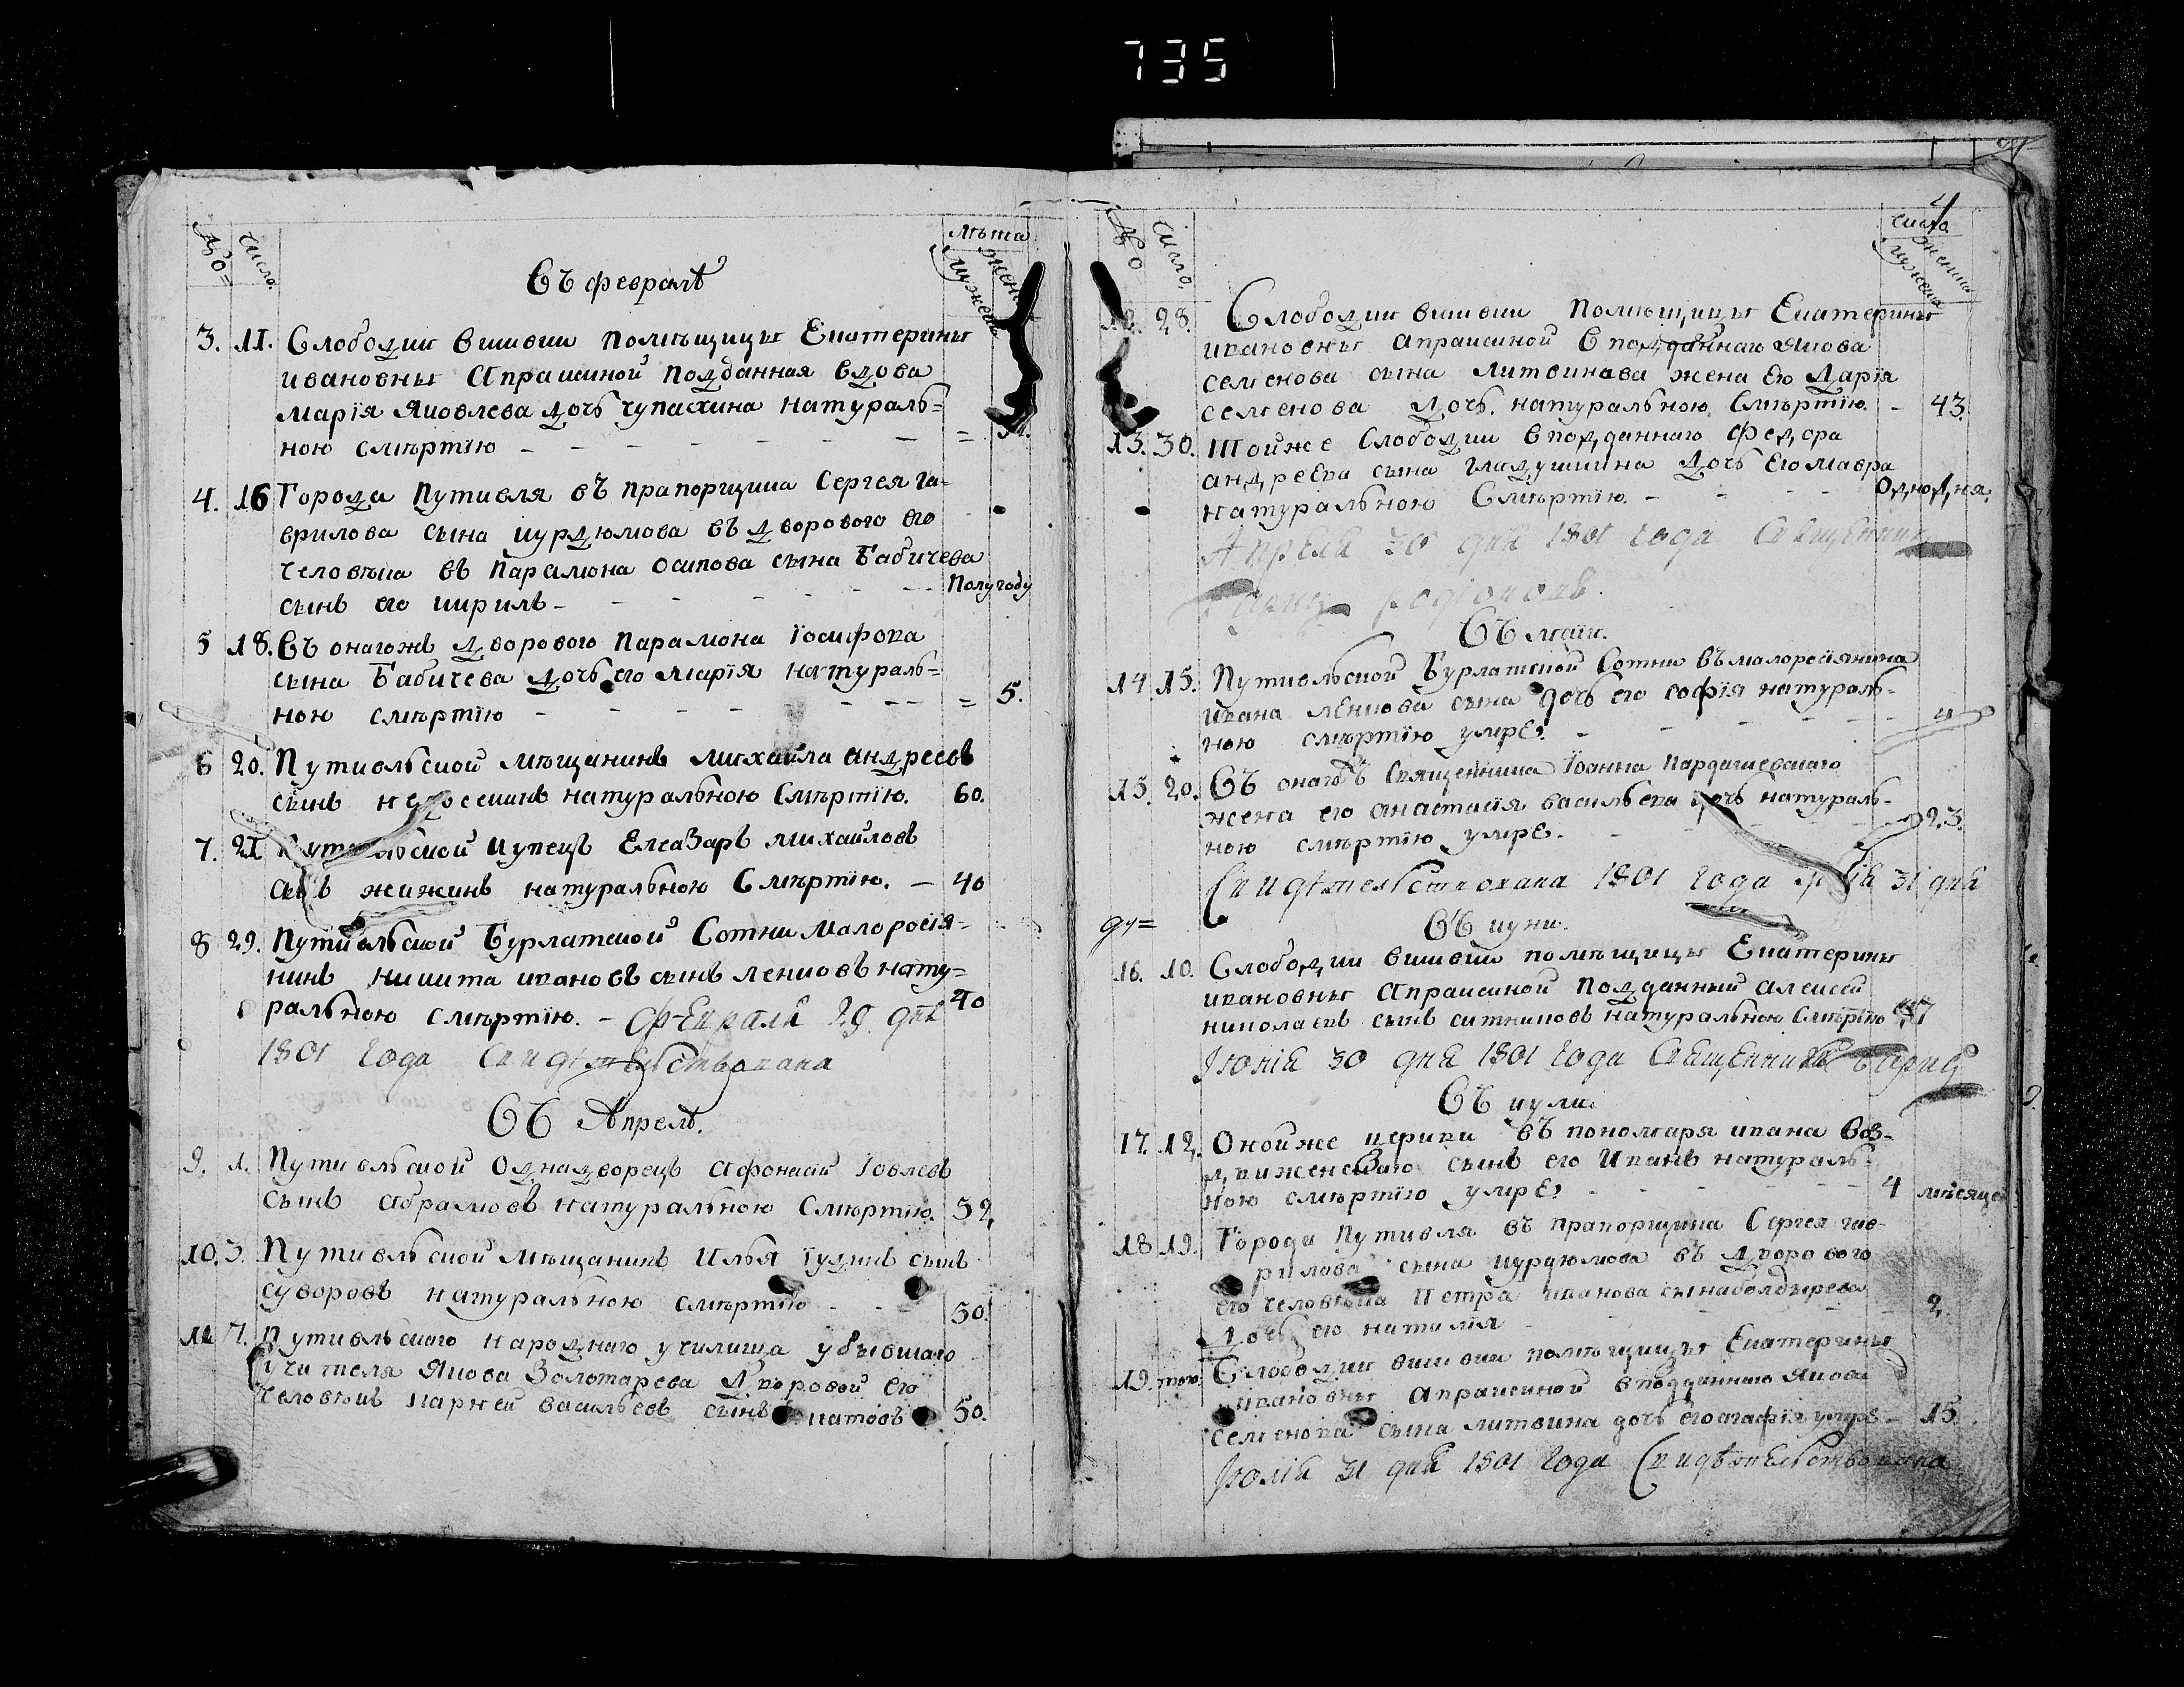 735
№о= число. лѣта
мужеска женска
Въ февралѣ
3. 11. Слободки вшивки помѣщицы Екатерины
ивановны Апраксиной подданная вдова
марїя Яковлева дочь чупахина натураль=
ною смѣртїю =
4. 16 Города Путивля въ прапорщика Сергея га=
врилова сына курдюмова въ дворового его
человѣка въ Парамона осипова сына Бабичева
сынъ его кирилъ - Полугоду
5 18. Въ онагожъ дворового Парамона їосифова
сына Бабичева дочь его марїя натураль=
ною смѣртїю = 5.
6 20. Путивльской мѣщанинъ михайла андреевъ
сынъ натуральною Смѣртїю. 60.
7. 21 Путивльской купецъ Елеазаръ михайловъ
сынъ жижинъ натуральною Смѣртїю. - 40
8 29. Путивльской Бурлатской Сотни малоросїя-
нинъ никита ивановъ сынъ леиковъ нату=
ральною смѣртїю. - Февраля 29 дня 40
1801 года Свидѣтельствована
Въ Апрелѣ.
9. 1. Путивльской Однадворецъ Афонасий їовлевъ
сынъ абрамовъ натуральною Смѣртїю. 52
10. 3. Путивльской мѣщанинъ Илья їудинъ сынъ
суворовъ натуральною смѣртїю - - 50.
11 7. Путивльскаго народнаго училища убывшаго
учителя Якова Золотарева Дворовой его
человѣкъ Карней васильевъ сынъ 50.
4
№о число. число.
мужеска женска
12. 28. Слободки вшивки Помѣщицы Екатерины
ивановны Апраксиной Вподданнаго Якова
семенова сына Литвинова жена его Дарїя
семенова дочь. натуральною Смѣртїю. - 43.
13. 30. Тойже Слободки вподданнаго Федора
андреева сына гладушкина дочь его мавра
натуральною Смѣртїю. - Однодня.
Апреля 30 дня 1801 года Священник
Гариц родїоновъ.
Въ маїи.
14 15. Путивльской Бурлатской Сотни въмалоросїянина
ивана леикова сына дочь его софїя натураль-
ною смѣртїю умре.
15. 20. Въ онагожъ Священника Їоанна
жена его анастасїя васильева дочь натураль-
ною смѣртїю умре. - 23.
Свидѣтельствована 1801 года маїя 31 дня
Въ иуни.
16. 10. Слободки вшивки помѣщицы Екатерины
ивановны Апраксиной Подданный алексей
николаевъ сынъ ситниковъ натуральною Смѣртїю
Июнїя 30 дня 1801 года Священникъ Гариц
Въ иули.
17. 12. Онойже церкви въ пономаря ивана Воз-
движенскаго сынъ его Иванъ натураль-
ною смѣртїю умре. 4 месяцев
18 19. Города Путивля въ прапорщика Сергея гав-
рилова сына курдюмова въ Дворового
его человѣка Петра иванова сынаболдырева
Дочь его наталїя - 2.
19. того Слободки вшивки помѣщицы Екатерины
ивановны Апраксиной вподданнаго Якова
семенова сына литвина дочь его агафїя умре - 15.
Июлїя 31 дня 1801 года Свидѣтельствована